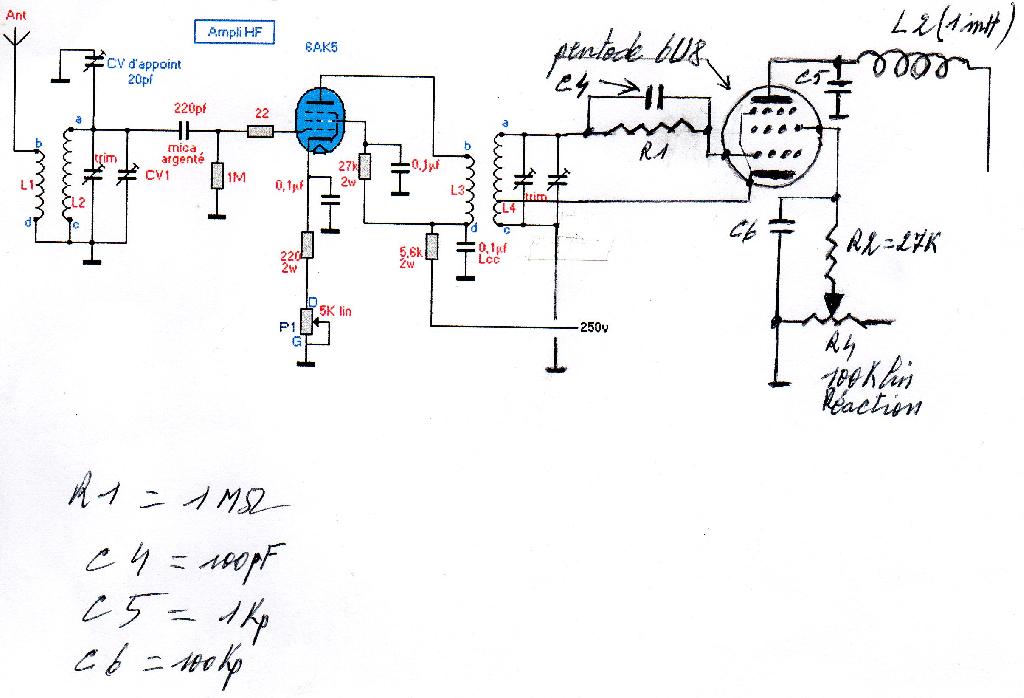 Ant
Ampli HF
6AK5
CV d'appoint
20pf
220pf
22
mica
argenté
a
b
L1
L2
trim
CV1
1M
d
c
0,1µf
27k
2w
0,1µf
b
L3
d
a
L4
trim
c
220
2w
5,6k
2w
0,1µf
Lcc
D
5K lin
P1
G
250v
pentode 6U8
C4
R1
C5
L2 (1mH)
C6
R2=27K
R4
100K lin
Réaction
R1 = 1MΩ
C4 = 100pF
C5 = 1Kp
C6 = 100Kp